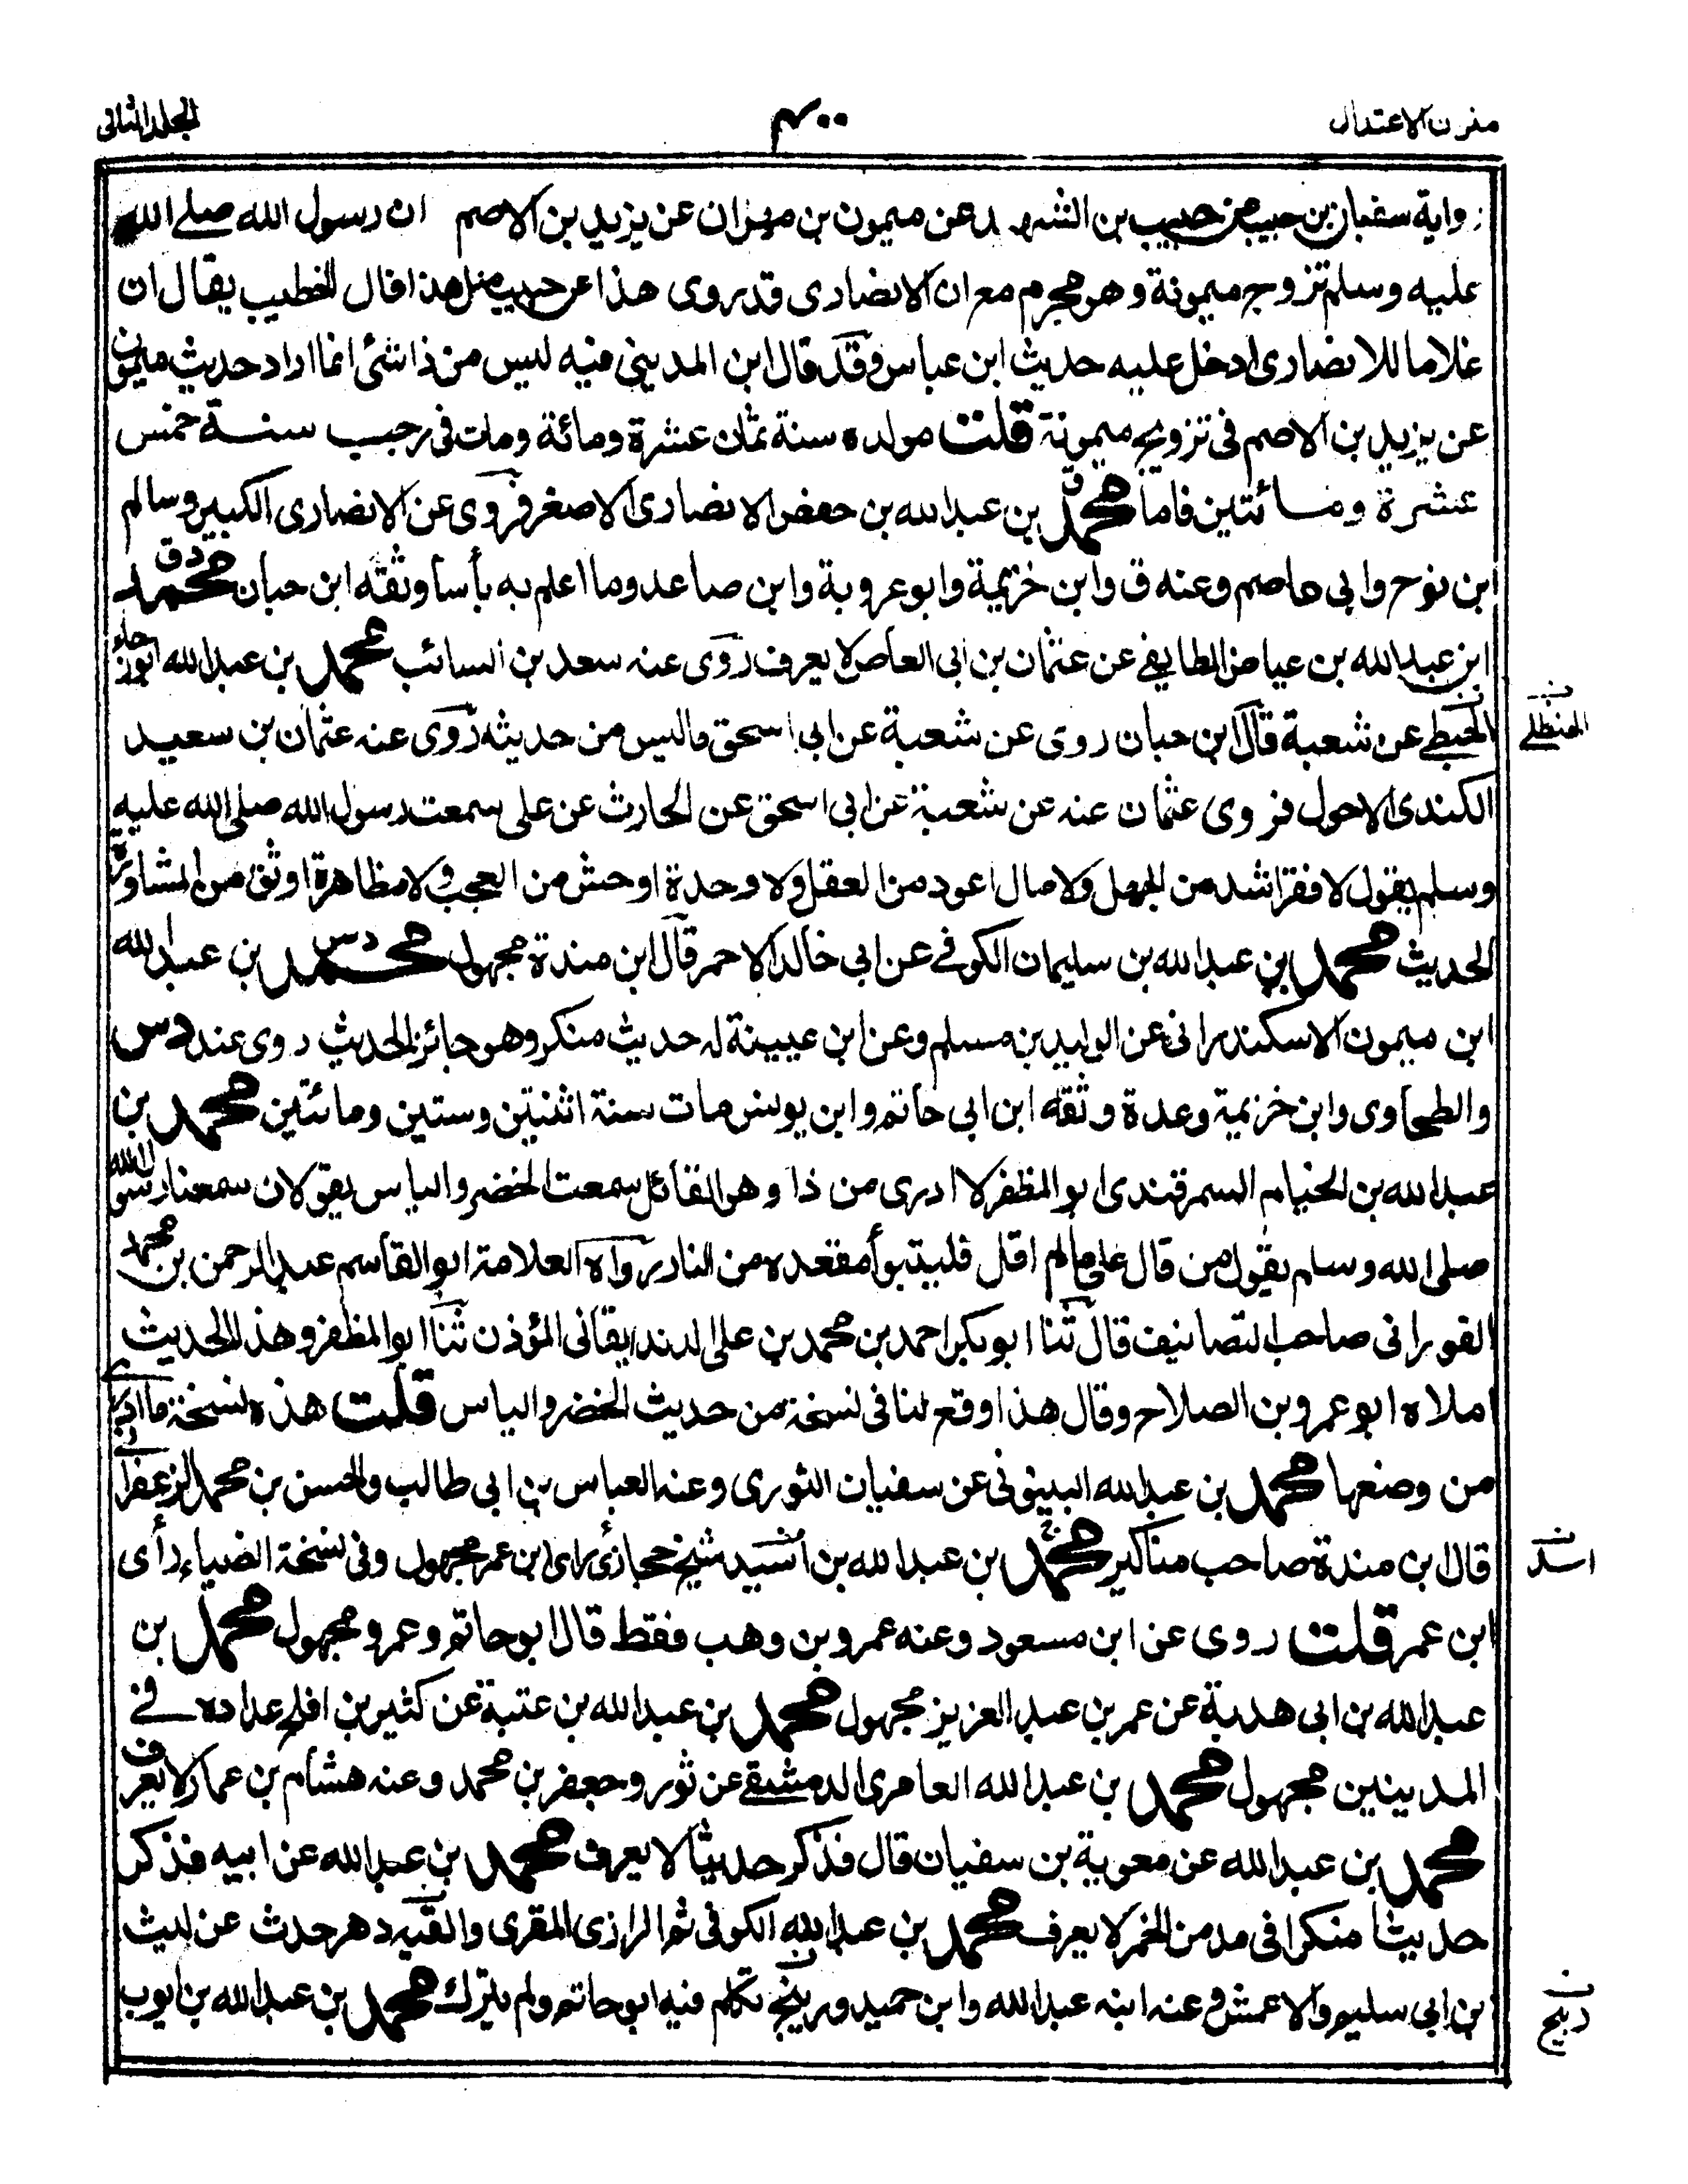 ميزان الاعتدال
٤٠٠
المجلد الثانى
رواية سفيان بن حبيب عن حبيب بن الشهيد عن ميمون بن مهران عن يزيد بن الاصم ان رسول الله صلے الله
عليه وسلم تزوج ميمونة وهو محرم مع ان الانصارى قد روى هذا عن حبيب مثل هذا قال الخطيب يقال ان
غلاما للانصارى ادخل عليه حديث ابن عباس وقد قال ابن المدينى فيه ليس من ذا شئ انما اراد حديث ميمون
عن يزيد بن الاصم فى تزويجه ميمونة قلت مولده سنة ثمان عشرة ومائة ومات فى رجب سنة خمس
عشرة ومائتين فاما محمد ق بن عبد الله بن حفص الانصارى الاصغر فروى عن الانصارى الكبير وسالم
ابن نوح وابى عاصم وعنه ق وابن خزيمة وابو عروبة وابن صاعد وما اعلم به بأسا وثقه ابن حبان محمد د ق
ابن عبد الله بن عياض الطايفے عن عثمان بن ابى العاص لا يعرف روى عنه سعد بن السائب محمد بن عبد الله ابو رجاء
الحبطے عن شعبة قال ابن حبان روى عن شعبة عن ابى اسحق ما ليس من حديثه روى عنه عثمان بن سعيد
ن الحنظلے
الكندى الاحول فروى عثمان عنه عن شعبة عن ابى اسحق عن الحارث عن على سمعت رسول الله صلى الله عليه
وسلم يقول لا فقر اشد من الجهل ولا مال اعود من العقل ولا وحدة اوحش من العجب ولا مظاهرة اوثق من المشاورة
الحديث محمد بن عبد الله بن سليمان الكوفے عن ابى خالد الاحمر قال ابن مندة مجهول محمد د س بن عبد الله
ابن ميمون الاسكندرانى عن الوليد بن مسلم وعن ابن عيينة له حديث منكر وهو جائز الحديث روى عنه د س
والطحاوى وابن خزيمة وعدة وثقه ابن ابى حاتم وابن يونس مات سنة اثنتين وستين ومائتين محمد بن
عبد الله بن الخيام السمرقندى ابو المظفر لا ادرى من ذا وهو القائل سمعت الخضر والياس يقولان سمعنا رسول الله
صلى الله وسلم يقول من قال على مالم اقل فليتبوأ مقعده من النار رواه العلامة ابو القاسم عبد الرحمن بن محمد
الفورانى صاحب التصانيف قال ثنا ابو بكر احمد بن محمد بن على الدندانقانى المؤذن ثنا ابو المظفر وهذا الحديث
املاه ابو عمرو بن الصلاح وقال هذا وقع لنا فى نسخة من حديث الخضر والياس قلت هذه نسخة ما ادرى
من وضعها محمد بن عبد الله البينونى عن سفيان الثورى وعنه العباس بن ابى طالب والحسن بن محمد الزعفرانى
قال ابن مندة صاحب مناكير محمد بن عبد الله بن اسيد شيخ حجازى راى ابن عمر مجهول وفى نسخة الضياء رأى
ن اسد
ابن عمر قلت روى عن ابن مسعود وعنه عمرو بن وهب فقط قال ابو حاتم وعمرو مجهول محمد بن
عبد الله بن ابى هدبة عن عمر بن عبد العزيز مجهول محمد بن عبد الله بن عتبة عن كثير بن افلح عداده فے
المدينين مجهول محمد بن عبد الله العامرى الدمشقے عن ثور وجعفر بن محمد وعنه هشام بن عمار لا يعرف
محمد بن عبد الله عن معوية بن سفيان قال فذكر حديثا لا يعرف محمد بن عبد الله عن ابيه فذكر
حديثا منكرا فى مدمن الخمر لا يعرف محمد بن عبد الله الكوفى ثم الرازى المقرى والقبه دهر حدث عن ليث
بن ابى سليم والاعمش وعنه ابنه عبد الله وابن حميد و تكلم فيه ابو حاتم ولم يترك محمد بن عبد الله بن ايوب
ن ذبيح